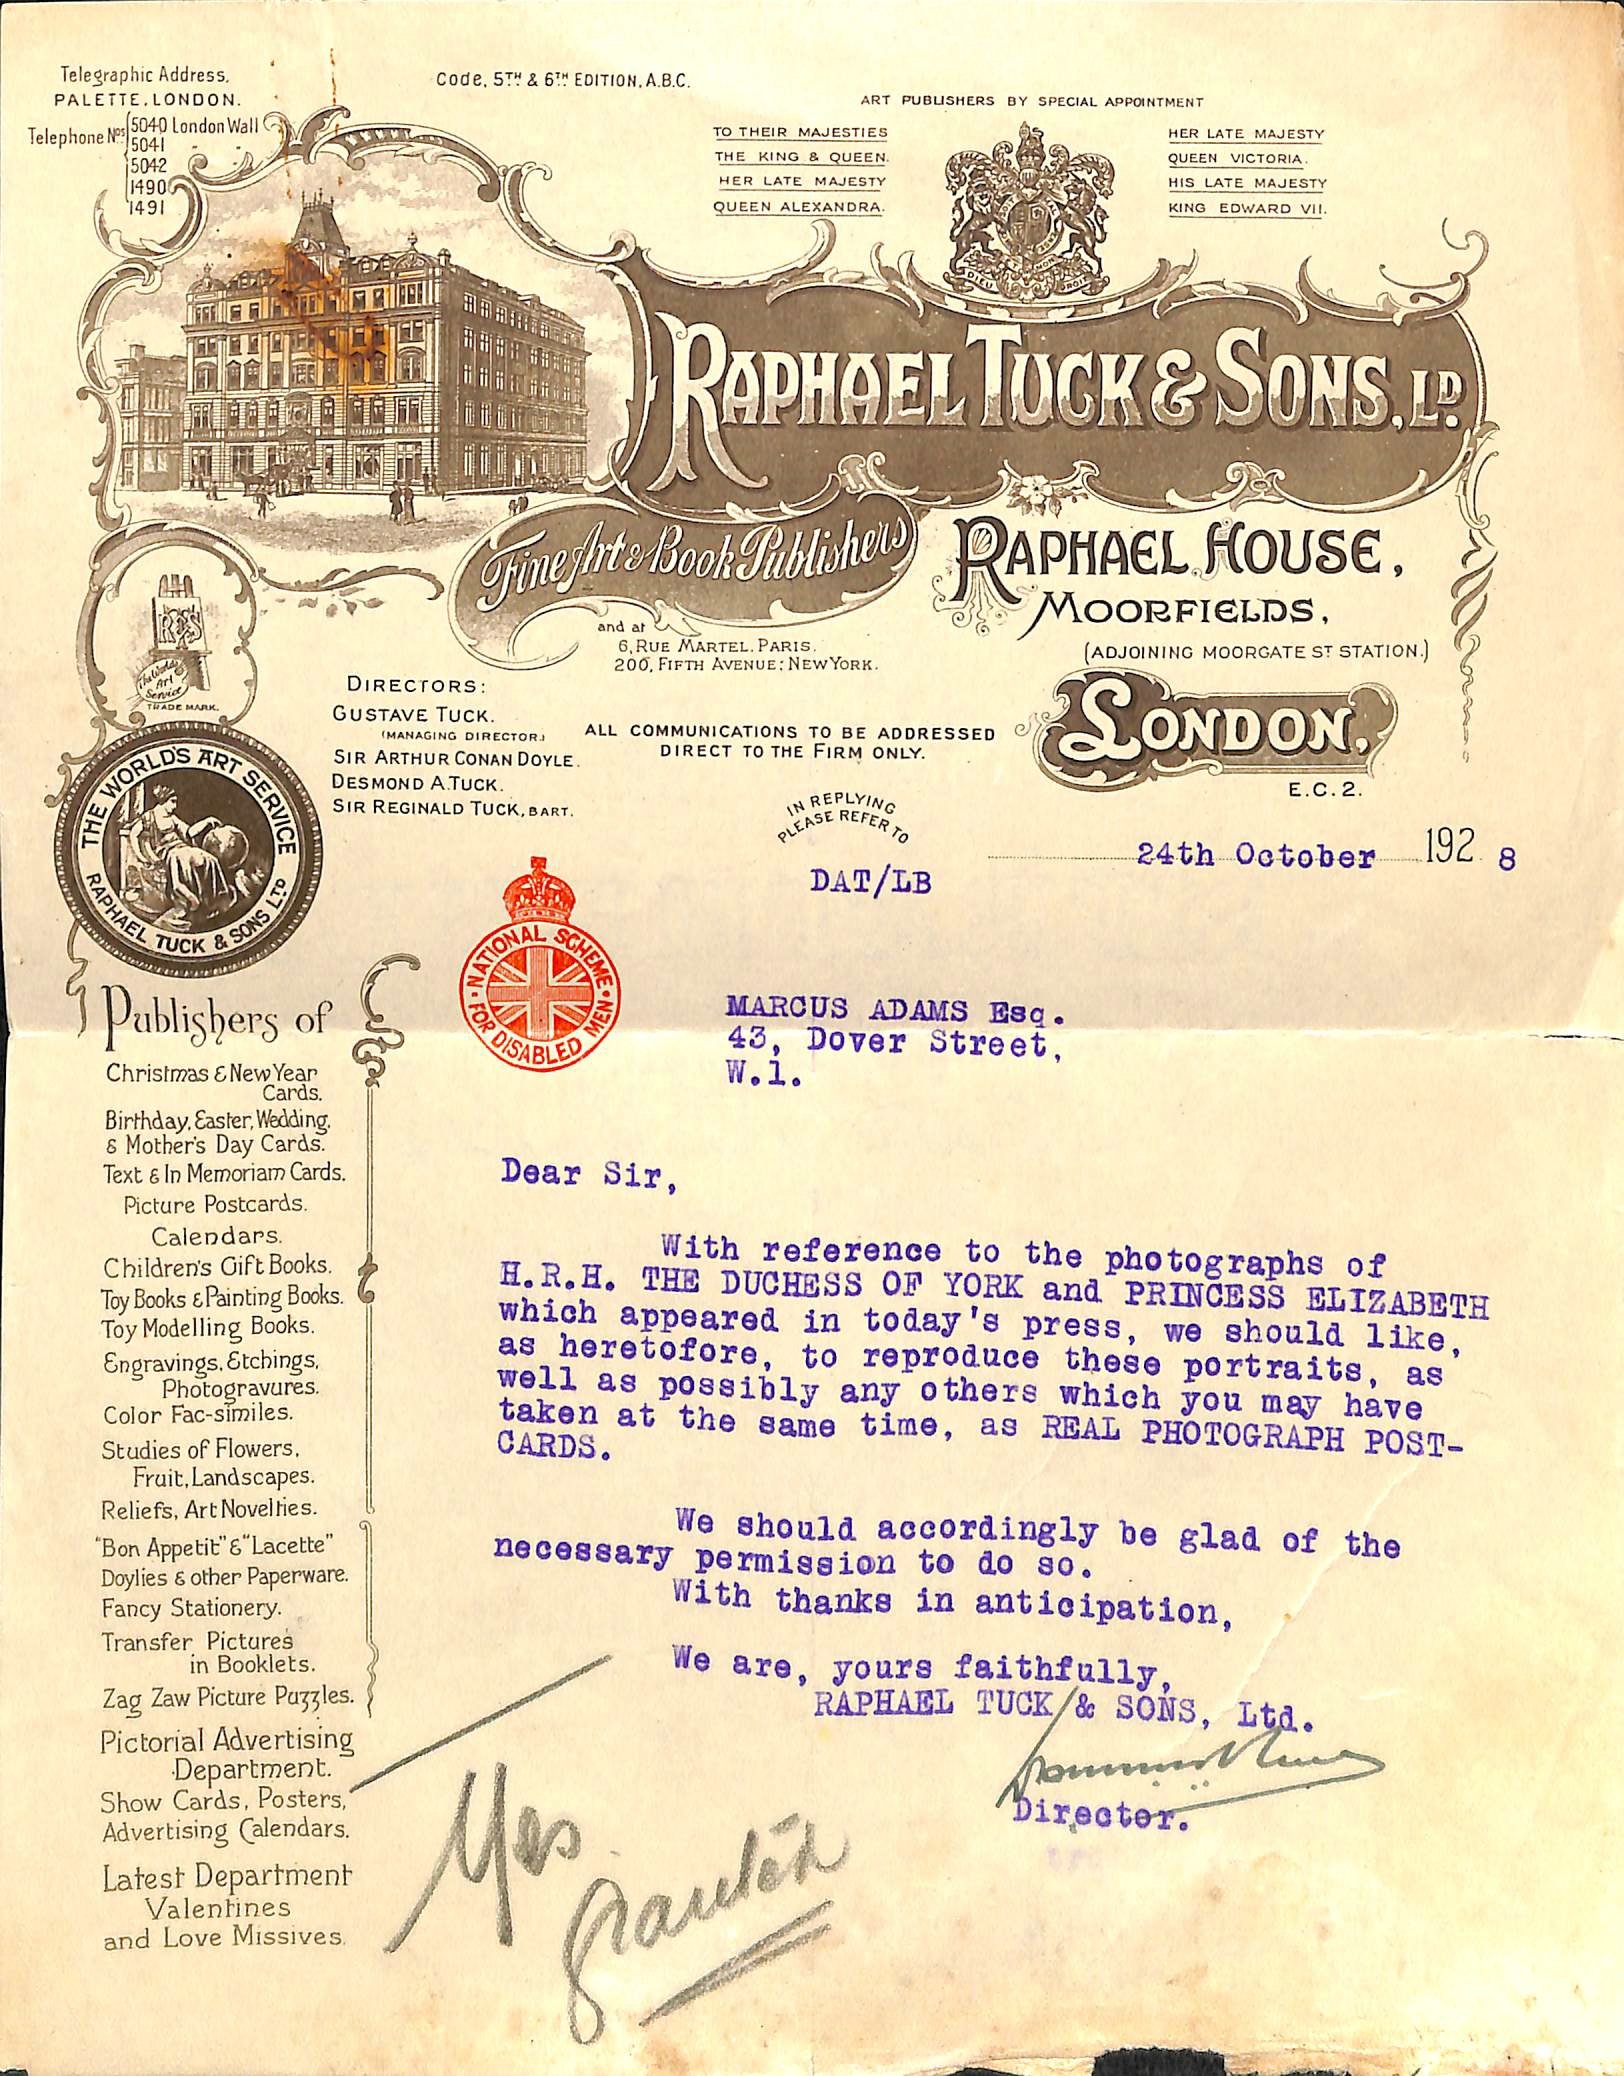 Telegraphic Address,
PALETTE, LONDON.
Telephone Nos 5040 London Wall
5041 " "
5042
1490
1491
Code, 5TH & 6TH EDITION, A.B.C.
ART PUBLISHERS BY SPECIAL APPOINTMENT
TO THEIR MAJESTIES
THE KING & QUEEN.
HER LATE MAJESTY
QUEEN ALEXANDRA.
HER LATE MAJESTY
QUEEN VICTORIA.
HIS LATE MAJESTY
KING EDWARD VII.
DIEU DROIT
RAPHAEL TUCK & SONS, LD.
Fine Art & Book Publishers
RAPHAEL HOUSE,
MOORFIELDS,
(ADJOINING MOORGATE ST STATION.)
LONDON,
E.C.2.
and at
6, RUE MARTEL, PARIS.
200, FIFTH AVENUE; NEW YORK.
R&S
The World's
Art
Service
TRADE MARK.
DIRECTORS:
GUSTAVE TUCK.
(MANAGING DIRECTOR.)
SIR ARTHUR CONAN DOYLE.
DESMOND A. TUCK.
SIR REGINALD TUCK, BART.
ALL COMMUNICATIONS TO BE ADDRESSED
DIRECT TO THE FIRM ONLY.
THE WORLD'S ART SERVICE
RAPHAEL TUCK & SONS LTD
IN REPLYING
PLEASE REFER TO
DAT/LB
24th October 1928
NATIONAL SCHEME
FOR DISABLED MEN
MARCUS ADAMS Esq.
43, Dover Street,
W.1.
Publishers of
Christmas & New Year
Cards.
Birthday, Easter, Wedding,
& Mother's Day Cards.
Text & In Memoriam Cards.
Picture Postcards.
Calendars.
Children's Gift Books.
Toy Books & Painting Books.
Toy Modelling Books.
Engravings, Etchings,
Photogravures.
Color Fac-similes.
Studies of Flowers,
Fruit, Landscapes.
Reliefs, Art Novelties.
"Bon Appetit" & "Lacette"
Doylies & other Paperware.
Fancy Stationery.
Transfer Pictures
in Booklets.
Zag Zaw Picture Puzzles.
Pictorial Advertising
Department.
Show Cards, Posters,
Advertising Calendars.
Latest Department
Valentines
and Love Missives.
Dear Sir,
With reference to the photographs of
H.R.H. THE DUCHESS OF YORK and PRINCESS ELIZABETH
which appeared in today's press, we should like,
as heretofore, to reproduce these portraits, as
well as possibly any others which you may have
taken at the same time, as REAL PHOTOGRAPH POST-
CARDS.
We should accordingly be glad of the
necessary permission to do so.
With thanks in anticipation,
We are, yours faithfully,
RAPHAEL TUCK & SONS, Ltd.
Director.
Yes
granted